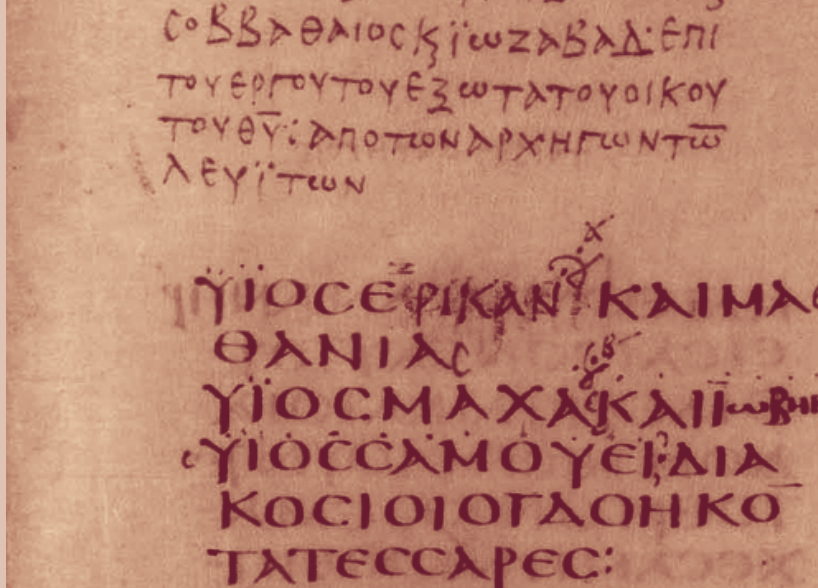 ϹΟΒΒΑΘΑΙΟϹ Ϗ ΪΩΖΑΒΑΔ: ΕΠΙ
ΤΟΥ ΕΡΓΟΥ ΤΟΥ ΕΞΩΤΑΤΟΥ ΟΙΚΟΥ
ΤΟΥ Θ̅Υ̅: ΑΠΟ ΤΩΝ ΑΡΧΗΓΩΝ ΤΩ̅
ΛΕΥΪΤΩΝ
ΫΪΟϹΕΡΙΚΑΝ ΚΑΙΜΑΘ
ΘΑΝΙΑϹ
ΥΪΟϹΜΑΧΑ ΚΑΙΙΩΒΗΒ
ΥΙΟϹϹΑΜΟΥΕΙ ΔΙΑ
ΚΟϹΙΟΙΟΓΔΟΗΚΟ̅
ΤΑΤΕϹϹΑΡΕϹ: